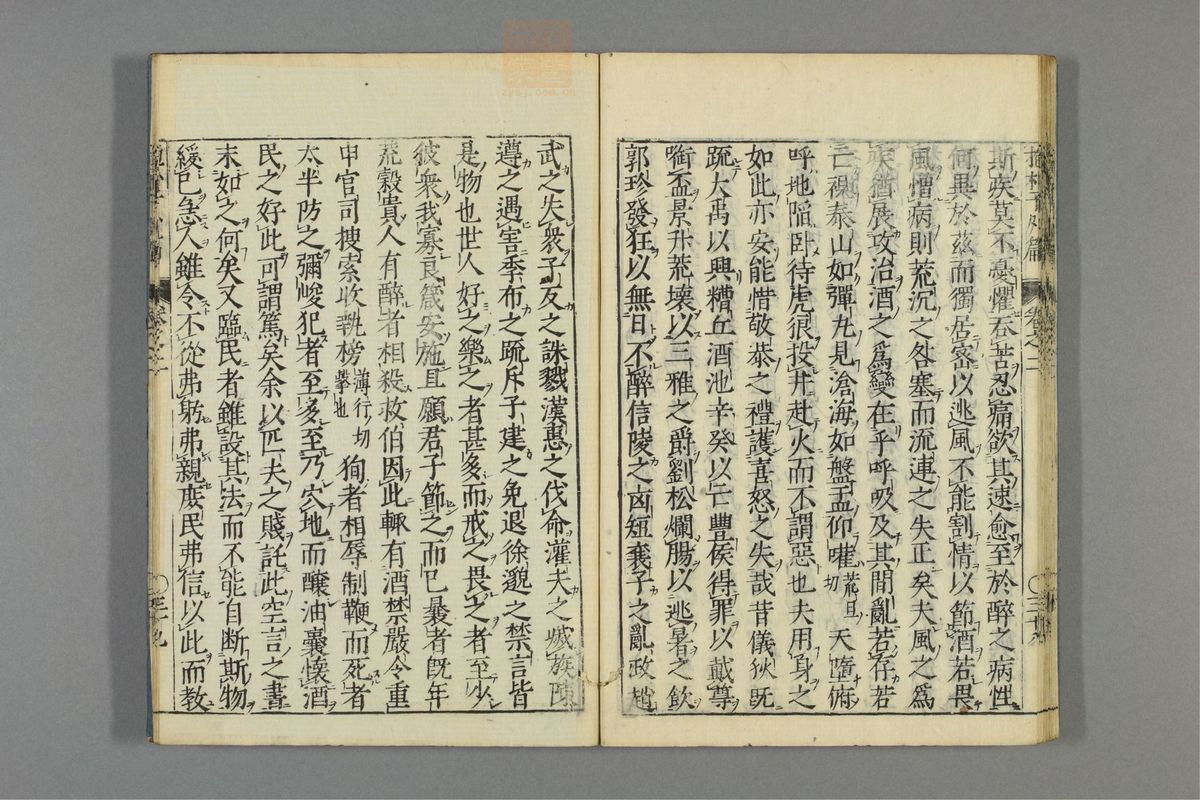 斯疾莫不憂懼吞苦忍痛欲其速愈至於醉之病性
何異於茲而獨居密以逃風不能割情以節酒若畏
風憎病則荒沉之咎塞而流連之失正矣夫風之爲
疾猶展攻治酒之爲變在乎呼吸及其閒亂若存若
亡視泰山如彈丸見滄海如盤盂仰嚾荒旦切天墮俯
呼地陷臥待虎狼投井赴火而不謂惡也夫用身之
如此亦安能惜敬恭之禮護喜怒之失哉昔儀狄既
疏大禹以興糟丘酒池辛癸以亡豐侯得罪以戴尊
銜盃景升荒壞以三雅之爵劉松爛腸以逃暑之飲
郭珍發狂以無日不醉信陵之凶短襄子之亂政趙
武之失衆子反之誅戮漢惠之伐命灌夫之滅族陳
遵之遇害季布之疏斥子建之免退徐邈之禁言皆
是物也世人好之樂之者甚多而戒之畏之者至少
彼衆我寡良箴安施且願君子節之而已曩者既年
荒穀貴人有醉者相殺牧伯因此輒有酒禁嚴令重
申官司搜索收執榜薄行切擊也狥者相辱制鞭而死者
太半防之彌峻犯者至多至乃穴地而釀油囊懷酒
民之好此可謂篤矣余以匹夫之賤託此空言之書
末如之何矣又臨民者雖設其法而不能自断斯物
緩己急人雖令不從弗躬弗親庶民弗信以此而教